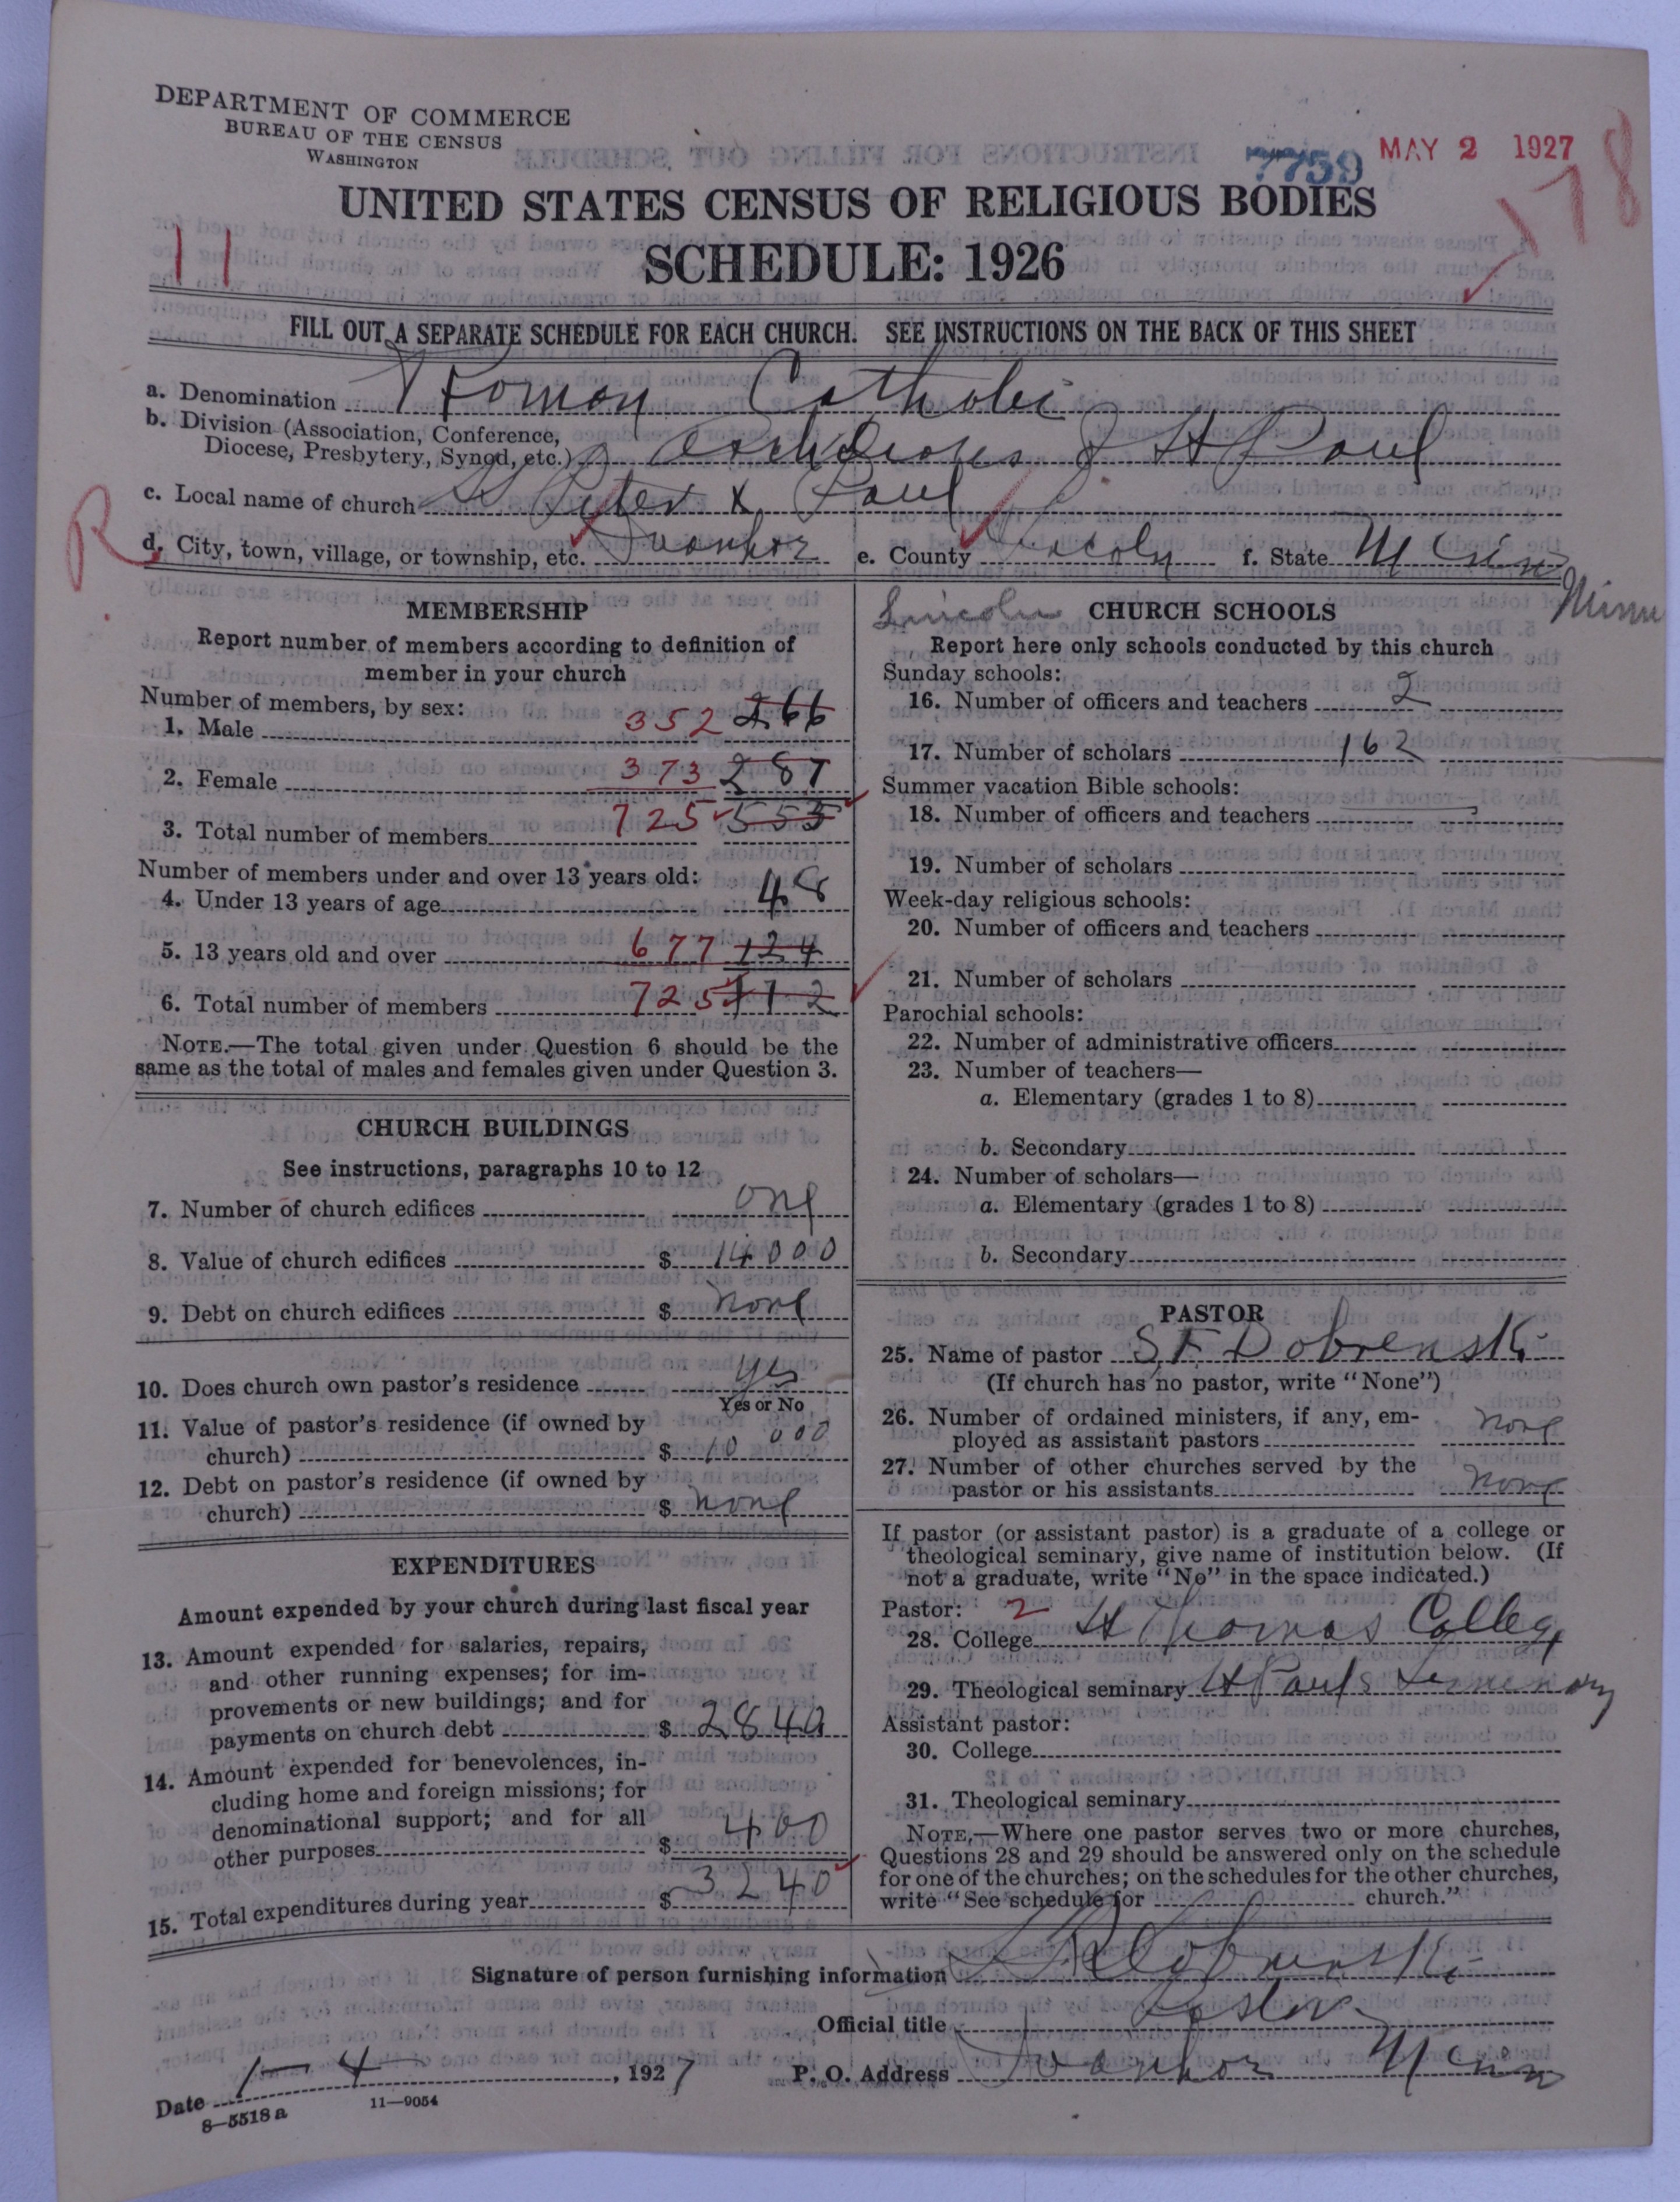 DEPARTMENT OF COMMERCE
BUREAU OF THE CENSUS
WASHINGTON
7759 MAY 2 1927
178
UNITED STATES CENSUS OF RELIGIOUS BODIES
11
SCHEDULE: 1926
FILL OUT A SEPARATE SCHEDULE FOR EACH CHURCH. SEE INSTRUCTIONS ON THE BACK OF THIS SHEET
a. Denomination Roman Catholic
b. Division (Association, Conference,
Diocese, Presbytery, Synod, etc.) Archdiocese of St Paul
c. Local name of church SS Peter & Paul
R
d. City, town, village, or township, etc. Ivanhoe e. County Lincoln f. State Minn
MEMBERSHIP
Report number of members according to definition of
member in your church
Number of members, by sex:
1. Male 352 266
2. Female 373 287
3. Total number of members 725 553
Number of members under and over 13 years old:
4. Under 13 years of age 48
5. 13 years old and over 677 124
6. Total number of members 725 172
NOTE.—The total given under Question 6 should be the
same as the total of males and females given under Question 3.
CHURCH BUILDINGS
See instructions, paragraphs 10 to 12
7. Number of church edifices one
8. Value of church edifices $ 14000
9. Debt on church edifices $ none
10. Does church own pastor's residence yes
Yes or No
11. Value of pastor's residence (if owned by
church) $ 10 000
12. Debt on pastor's residence (if owned by
church) $ none
EXPENDITURES
Amount expended by your church during last fiscal year
13. Amount expended for salaries, repairs,
and other running expenses; for im-
provements or new buildings; and for
payments on church debt $ 2840
14. Amount expended for benevolences, in-
cluding home and foreign missions; for
denominational support; and for all
other purposes $ 400
15. Total expenditures during year $ 3240
Lincoln CHURCH SCHOOLS Minn
Report here only schools conducted by this church
Sunday schools:
16. Number of officers and teachers 2
17. Number of scholars 162
Summer vacation Bible schools:
18. Number of officers and teachers
19. Number of scholars
Week-day religious schools:
20. Number of officers and teachers
21. Number of scholars
Parochial schools:
22. Number of administrative officers
23. Number of teachers—
a. Elementary (grades 1 to 8)
b. Secondary
24. Number of scholars—
a. Elementary (grades 1 to 8)
b. Secondary
PASTOR
25. Name of pastor S. F. Dobrenski
(If church has no pastor, write "None")
26. Number of ordained ministers, if any, em-
ployed as assistant pastors none
27. Number of other churches served by the
pastor or his assistants none
If pastor (or assistant pastor) is a graduate of a college or
theological seminary, give name of institution below. (If
not a graduate, write "No" in the space indicated.)
Pastor: 2
28. College St Thomas College
29. Theological seminary St Pauls Seminary
Assistant pastor:
30. College
31. Theological seminary
NOTE.—Where one pastor serves two or more churches,
Questions 28 and 29 should be answered only on the schedule
for one of the churches; on the schedules for the other churches,
write "See schedule for church."
Signature of person furnishing information S. F. Dobrenski
Official title Pastor
Date 1 — 4, 1927 P. O. Address Ivanhoe Minn
8—5518 a 11—9054